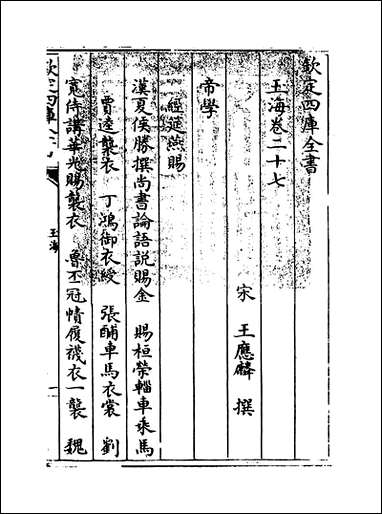 欽定四庫全書
玉海卷二十七
宋 王應麟 撰
帝學
經筵燕賜
漢夏侯勝撰尚書論語説賜金 賜桓榮輜車乘馬
賈逵襲衣 丁鴻御衣綬 張酺車馬衣裳 劉
寛侍講華光賜襲衣 魯丕冠幘履襪衣一襲 魏
欽定四庫全書
玉海
一